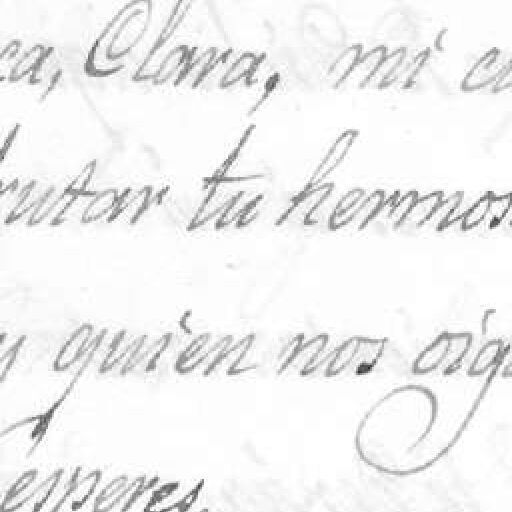 ca, Clara, mi c
rutar tu hermos
y quien nos oig
esperes.